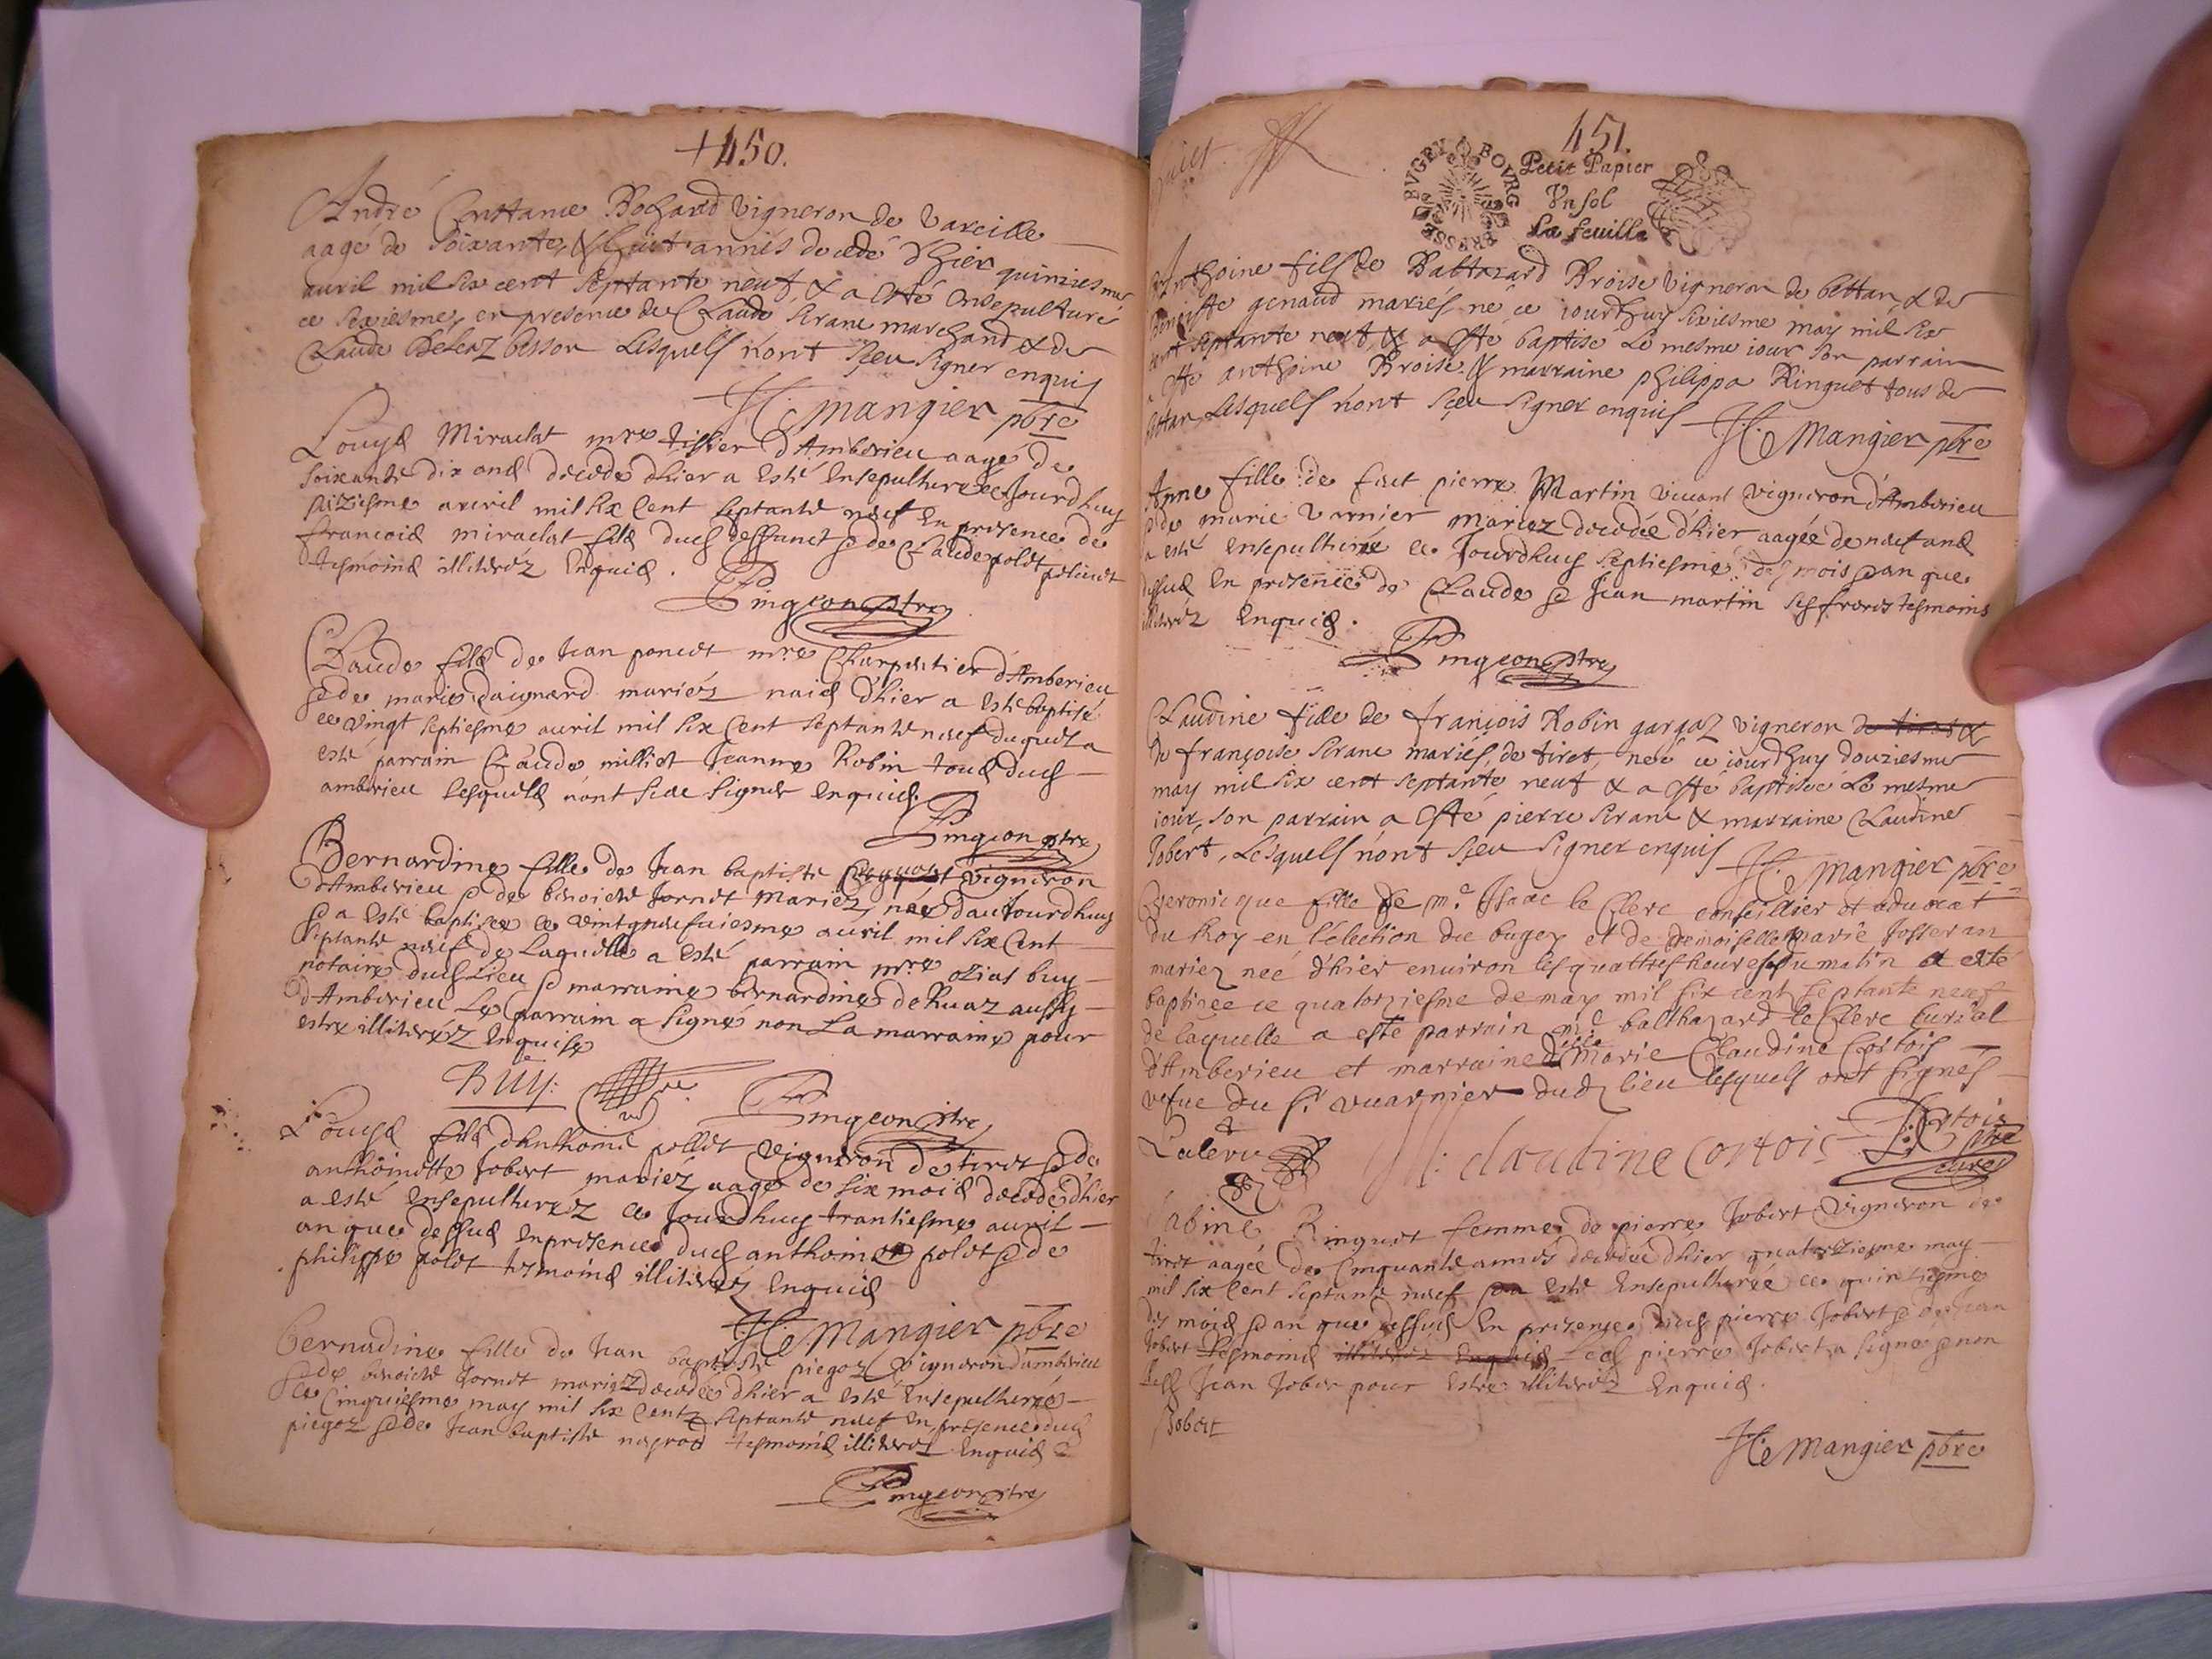 +450.
André Constance Bochard vigneron de Vareille
aagé de soixante & huit annés decedé d'hier quinziesme
avril mil six cent septante neuf & a esté ensepulturé
ce seziesme, en presence de Claude Sirane marchand & de
Claude besson Lesquels nont sçeu signer enquis
mangier pbre
Louys Miraclat mre tissier d'Amberieu aagé de
soixante dix ans decede dhier a esté ensepulturé ce Jourdhuy
seiziesme avril mil six cent septante neuf en presence de
francois miraclat fils dud deffunct & de Claude polet
tesmoins illiterez enquis.
Pingeon ptre
Claude fils de Jean poncet mre Charpentier d'Amberieu
& de marie daignard mariez naié d'hier a esté baptisé
ce vingt septiesme avril mil six cent septante neuf duquel a
esté parrain Claude milliet Jeanne Robin tous dud
amberieu lesquels nont sceu signer enquis.
Pingeon ptre
Bernardine fille de Jean baptiste vigneron
d'Amberieu & de benoicte Jornet mariez, née daujourdhuy
& a esté baptisée ce vintgneufuiesme avril mil six Cent
septante neuf de Laquelle a esté parrain mre ozias buy
notaire dud Lieu & marraine bernardine de Ruaz aussy
d'Amberieu Le parrain a signé non La marraine pour
estre illiterez Enquise
Buy:
Pingeon ptre
Louys fils d'Anthoine pollet vigneron de tiret & de
anthoinette Jobert mariez, aagé de six mois decedé dhier
a esté ensepulturéz ce Jourdhuy trantiesme avril
an que dessus en presence dud anthoine polet & de
philippe polet tesmoins illiterez Enquis
mangier pbre
Bernardine fille de Jean baptiste piegoz Vigneron damberieu
& de benoicte Jornet mariez decedée dhier a esté ensepulturée
ce Cinquiesme may mil six Cent septante neuf en presence dud
piegoz & de Jean baptiste tesmoins illiterez Enquis
Pingeon ptre
451.
BVGEY BOVRG BRESSE
Petit Papier
Vn sol
La feuille
Anthoine fils de Baltazard Broise vigneron de bettan, & de
benoiste genaud mariés né ce iourdhuy sixiesme may mil six
cent septante neuf, & a esté baptisé Le mesme iour son parrain
a esté anthoine Broise & marraine philippa Ringuet tous de
bettan, Lesquels nont sçeu signer enquis
mangier pbre
Anne fille de feut pierre Martin vivant vigneron d'Amberieu
& de marie varnier mariez decedée d'hier aagée de neuf ans
a esté ensepulturée ce Jourdhuy septiesme des mois & an que
dessus en presence de Claude & Jean martin ses freres tesmoins
illiterez enquis.
Pingeon ptre
Claudine fille de françois Robin gargaz vigneron de tiret &
de françoise Sirane mariés, de tiret, née ce iourdhuy douziesme
may mil six cent septante neuf & a esté baptisée Le mesme
iour, son parrain a esté pierre Sirane & marraine Claudine
Jobert, Lesquels nont sçeu signer enquis
mangier pbre
Veronicque fille de me Isaac le Clerc conseillier et advocat
du Roy en l'election du bugey et de demoiselle marie Josseran
mariez neé d'hier environ les quattres heures du matin a esté
baptizée ce quatorziesme de may mil six cent septante neuf
de laquelle a esté parrain me balthazard le Clerc curial
d'Amberieu et marraine marie Claudine Cortois
vefue du sr vuarnier dud lieu lesquels ont signés
Leclerc
M: claudine cortois
Cortois ptre curé
Sabine Ringuet femme de pierre Jobert vigneron de
tiret aagée de Cinquante années decedée dhier quatorziesme may
mil six Cent septante neuf & a esté Ensepulturée ce quinziesme
des mois & an que dessus En presence dud pierre Jobert & de Jean
Jobert tesmoins illiterez enquis Led pierre Jobert a signe & non
Led Jean Jober pour estre illiterez Enquis.
Jobert
mangier pbre